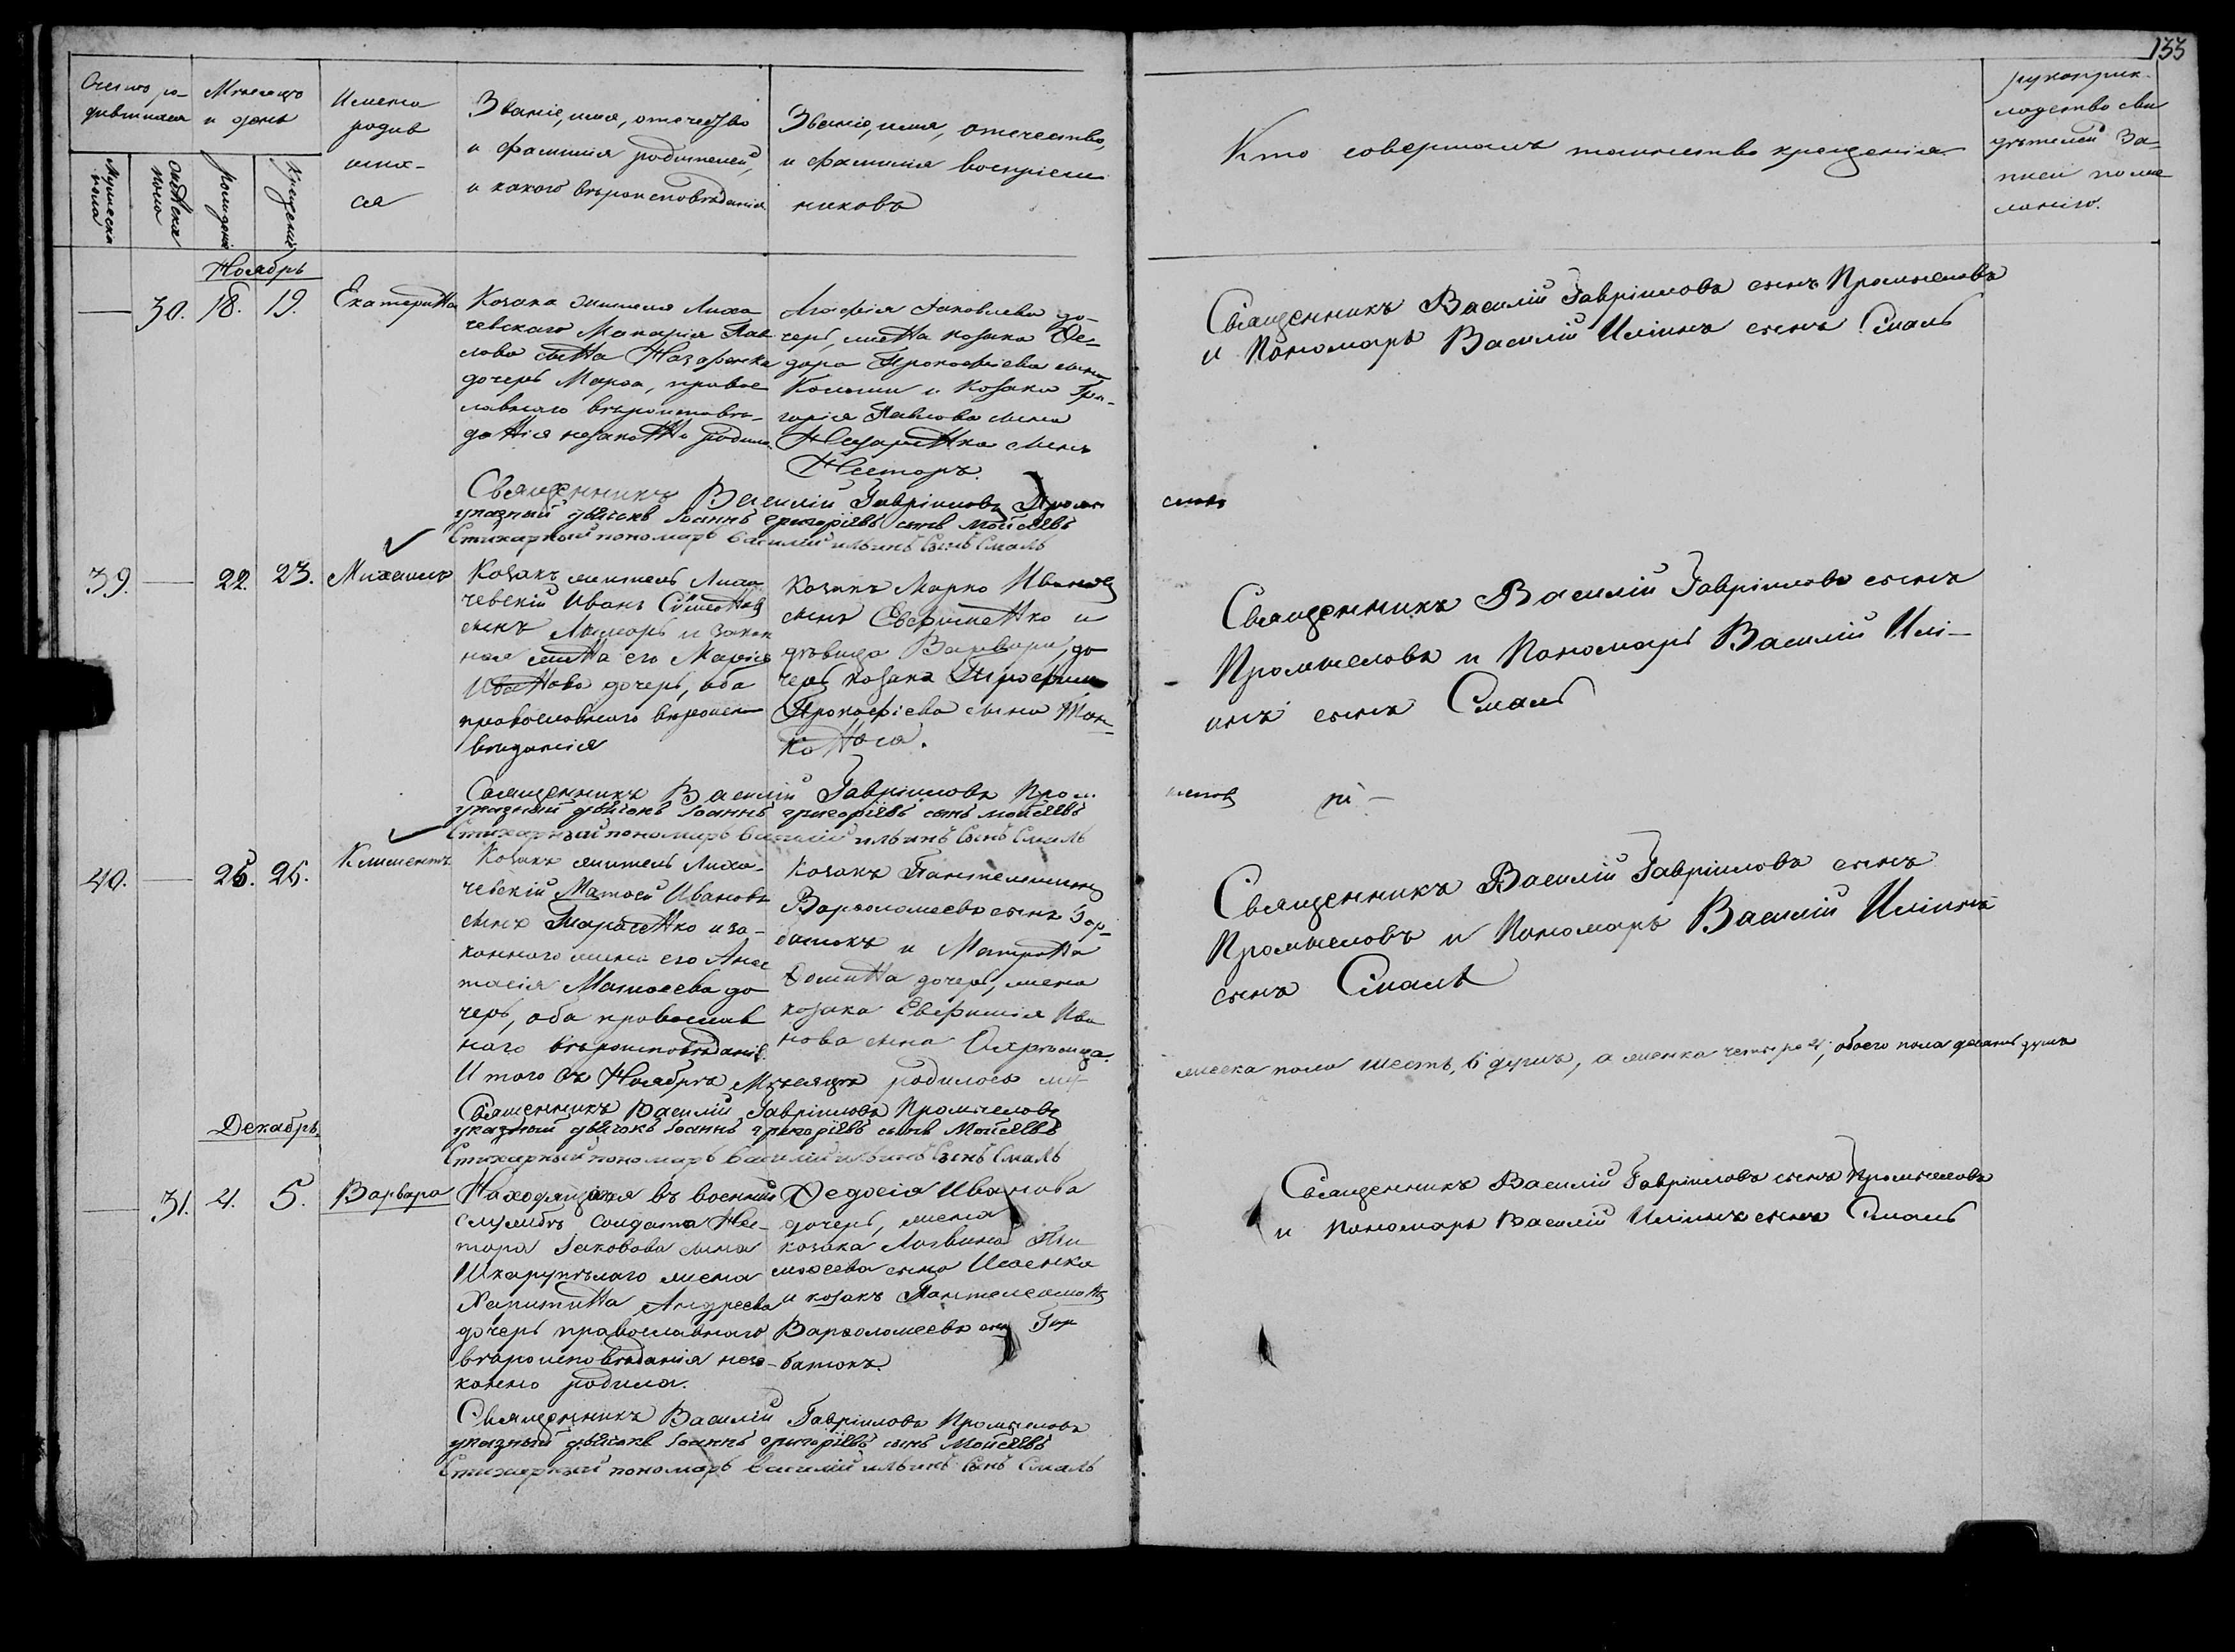 133
Счетъ ро-
дившихся
Мѣсяцъ
и день
Имена
родив
ших-
ся
Званіе, имя, отечество
и фамилія родителей,
и какого вѣроисповѣданія
Званіе, имя, отечество,
и фамилія воспріем
никовъ
Кто совершалъ таинство крещенія
рукоприк-
ладство сви
дѣтелей за-
писи по же
ланію.
Мужеска
пола
Женска
пола
рожденія
Крещенія
Ноябрь
30. 18. 19. Екатерина
Козака жителя Лиха
чевскаго Макарія Пав
лова сына Назаренка
дочерь Марѳа, правос
лавнаго вѣроисповѣ-
данія незаконно родила
Агафія Іаковлева до-
черь, жена козака Ѳе-
дора Прокофіева сына
и Козака Гри-
горія Павлова сына
Назаренка сынъ
Несторъ.
Священникъ Василій Гавріиловъ сынъ Промыселовъ
и Пономарь Василій Иліинъ сынъ Смаль
Священникъ Василій Гавріиловъ Промы
селовъ
указный дьячокъ Іоаннъ григоріевъ сынъ Мойсѣевъ
Стихарный пономарь василій ильинъ Сынъ Смаль
39. 22. 23. Михаилъ
Козакъ житель Лиха
чевскій Иванъ
сынъ Лимарь и закон
ная жена его Марія
Иванова дочерь, оба
православнаго вѣроиспо
вѣданія
Козакъ Марко Ивановъ
сынъ Евфименко и
дѣвица Варвара, до
черь козака Трофима
Прокофіева сына Тон-
коноса.
Священникъ Василій Гавріиловъ сынъ
Промыселовъ и Пономарь Василій Илі-
инъ сынъ Смаль
Священникъ Василій Гавріиловъ Промы
селовъ
указный дьячокъ Іоаннъ григоріевъ сынъ мойсѣевъ
Стихарный пономарь василій ильинъ Сынъ Смаль
40. 25. 26. Климентъ
Козакъ житель Лиха-
чевскій Матѳей Ивановъ
сынъ Тарасенко и за-
конная жена его Анас
тасія Матѳеева до
черь, оба православ
наго вѣроисповѣданія.
Козакъ Пантелеимонъ
Варѳоломеевъ сынъ Гор-
батюкъ и Матрона
Ѳомина дочерь, жена
козака Евфимія Ива
нова сына
Итого въ Ноябрѣ Мѣсяцѣ родилось му-
жеска пола шесть, 6 душъ, а женска четыре 4; обоего пола десять душъ
Священникъ Василій Гавріиловъ сынъ
Промыселовъ и Пономарь Василій Иліинъ
сынъ Смаль
Священникъ Василій Гавріиловъ Промыселовъ
указный дьячокъ Іоаннъ григоріевъ сынъ Мойсѣевъ
Стихарный пономарь василій ильинъ Сынъ Смаль
Декабрь.
31. 4. 5. Варвара
Находящагося въ военной
службѣ Солдата Нес-
тора Іаковова сына
Шкарупѣлаго жена
Харитина Андреева
дочерь православнаго
вѣроисповѣданія неза-
конно родила.
Ѳедосія Иванова
дочерь, жена
козака Логвина Ти
моѳеева сына Исаенка
и козакъ Пантелеимонъ
Варѳоломеевъ сынъ Гор
батюкъ.
Священникъ Василій Гавріиловъ сынъ Промыселовъ
и Пономарь Василій Иліинъ сынъ Смаль
Священникъ Василій Гавріиловъ Промыселовъ
указный дьячокъ Іоаннъ григоріевъ сынъ Мойсѣевъ
Стихарный пономарь василій ильинъ Сынъ Смаль